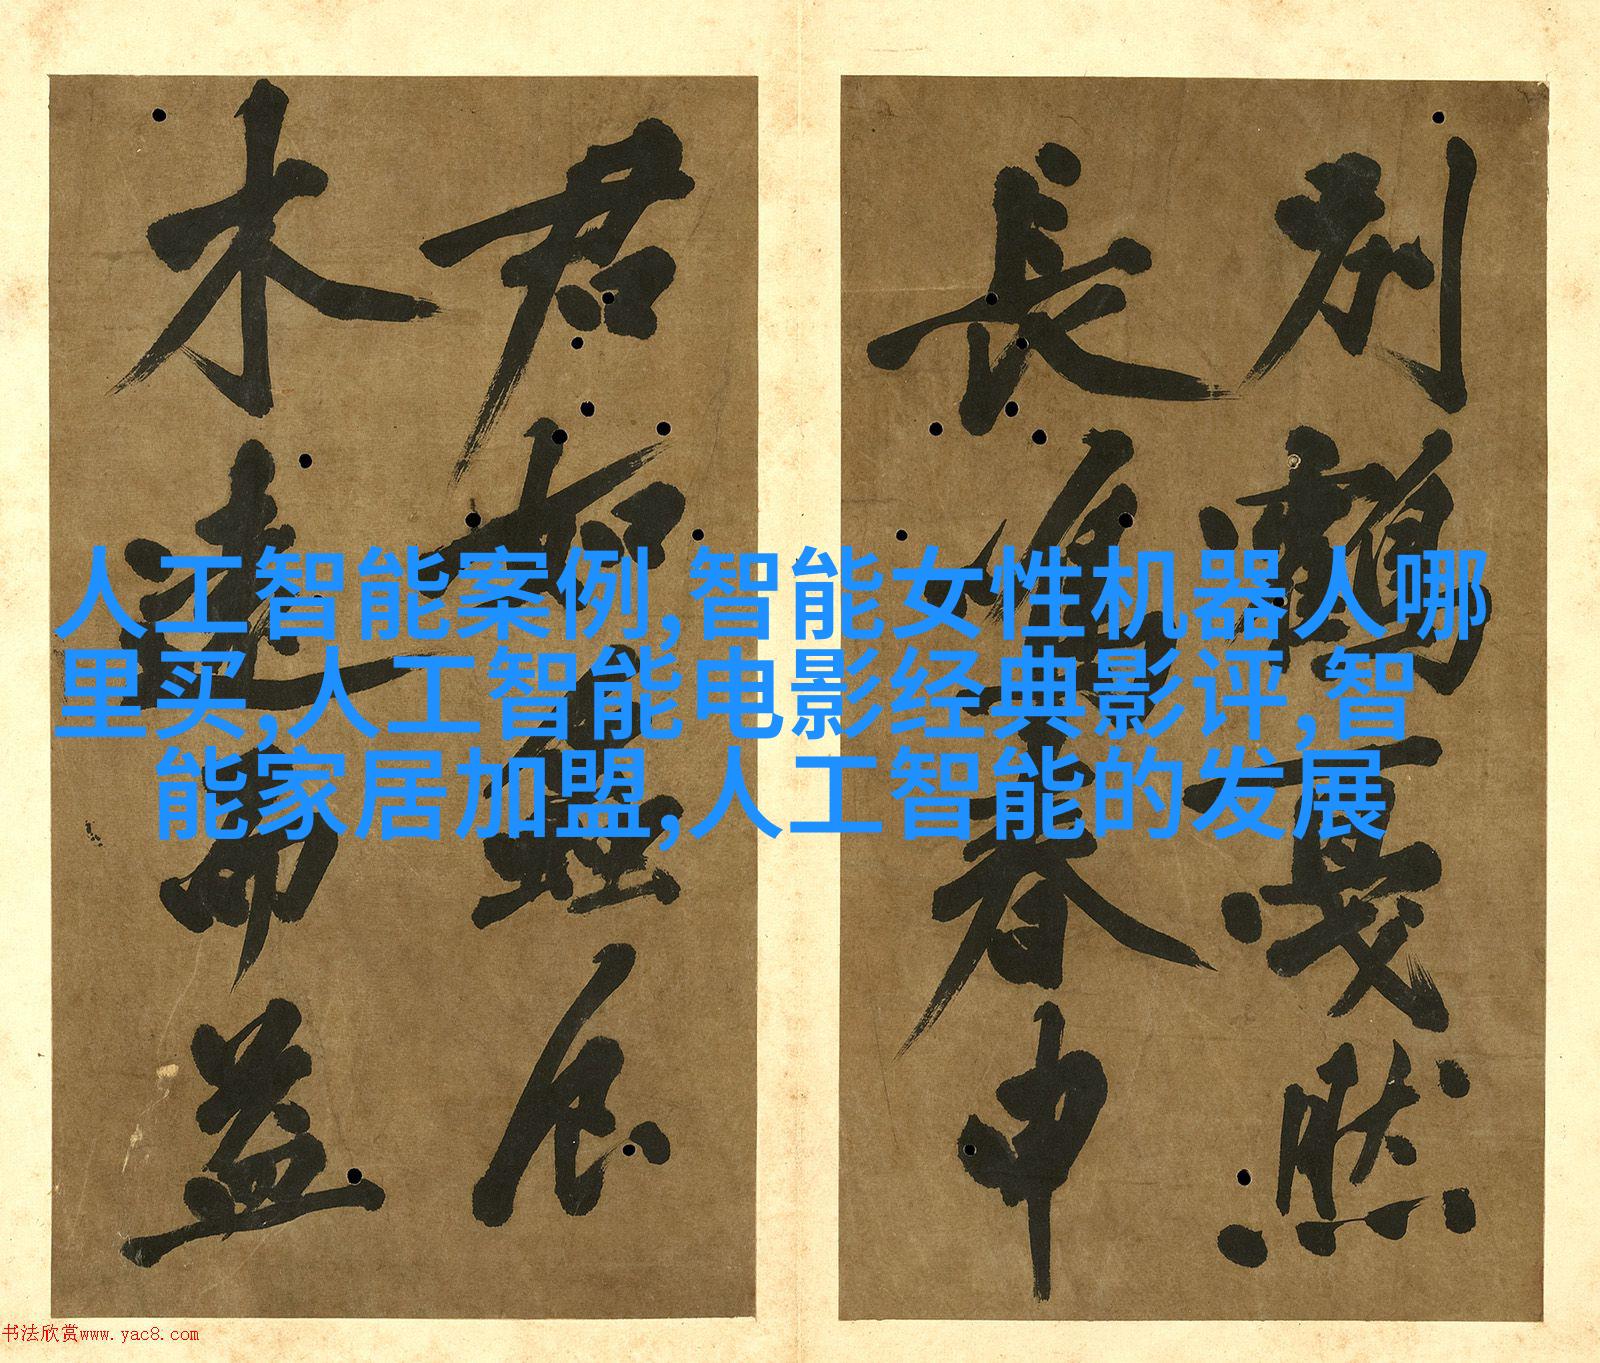 人工智能案例,智能女性机器人哪
里买,人工智能电影经典影评,智
能家居加盟,人工智能的发展
别鶴一戛然
長春申
君
木遠而益
书法欣赏www.yac8.com